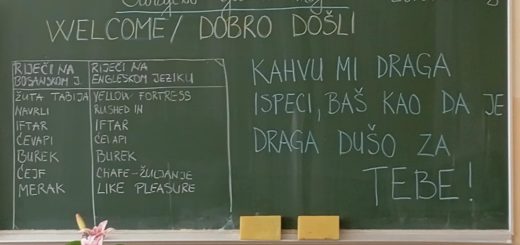 WELCOME/ DOBRO DOŠLI
RIJEČI NA BOSANSKOM J.
RIJEČI NA ENGLESKOM JEZIKU
ŽUTA TABIJA YELLOW FORTRESS
NAVRLI RUSHED IN
IFTAR IFTAR
ĆEVAPI ĆEVAPI
BUREK BUREK
ĆEJF CHAFE-ŽULJANJE
MERAK LIKE PLEASURE
KAHVU MI DRAGA
ISPECI, BAŠ KAO DA JE
DRAGA DUŠO ZA
TEBE!